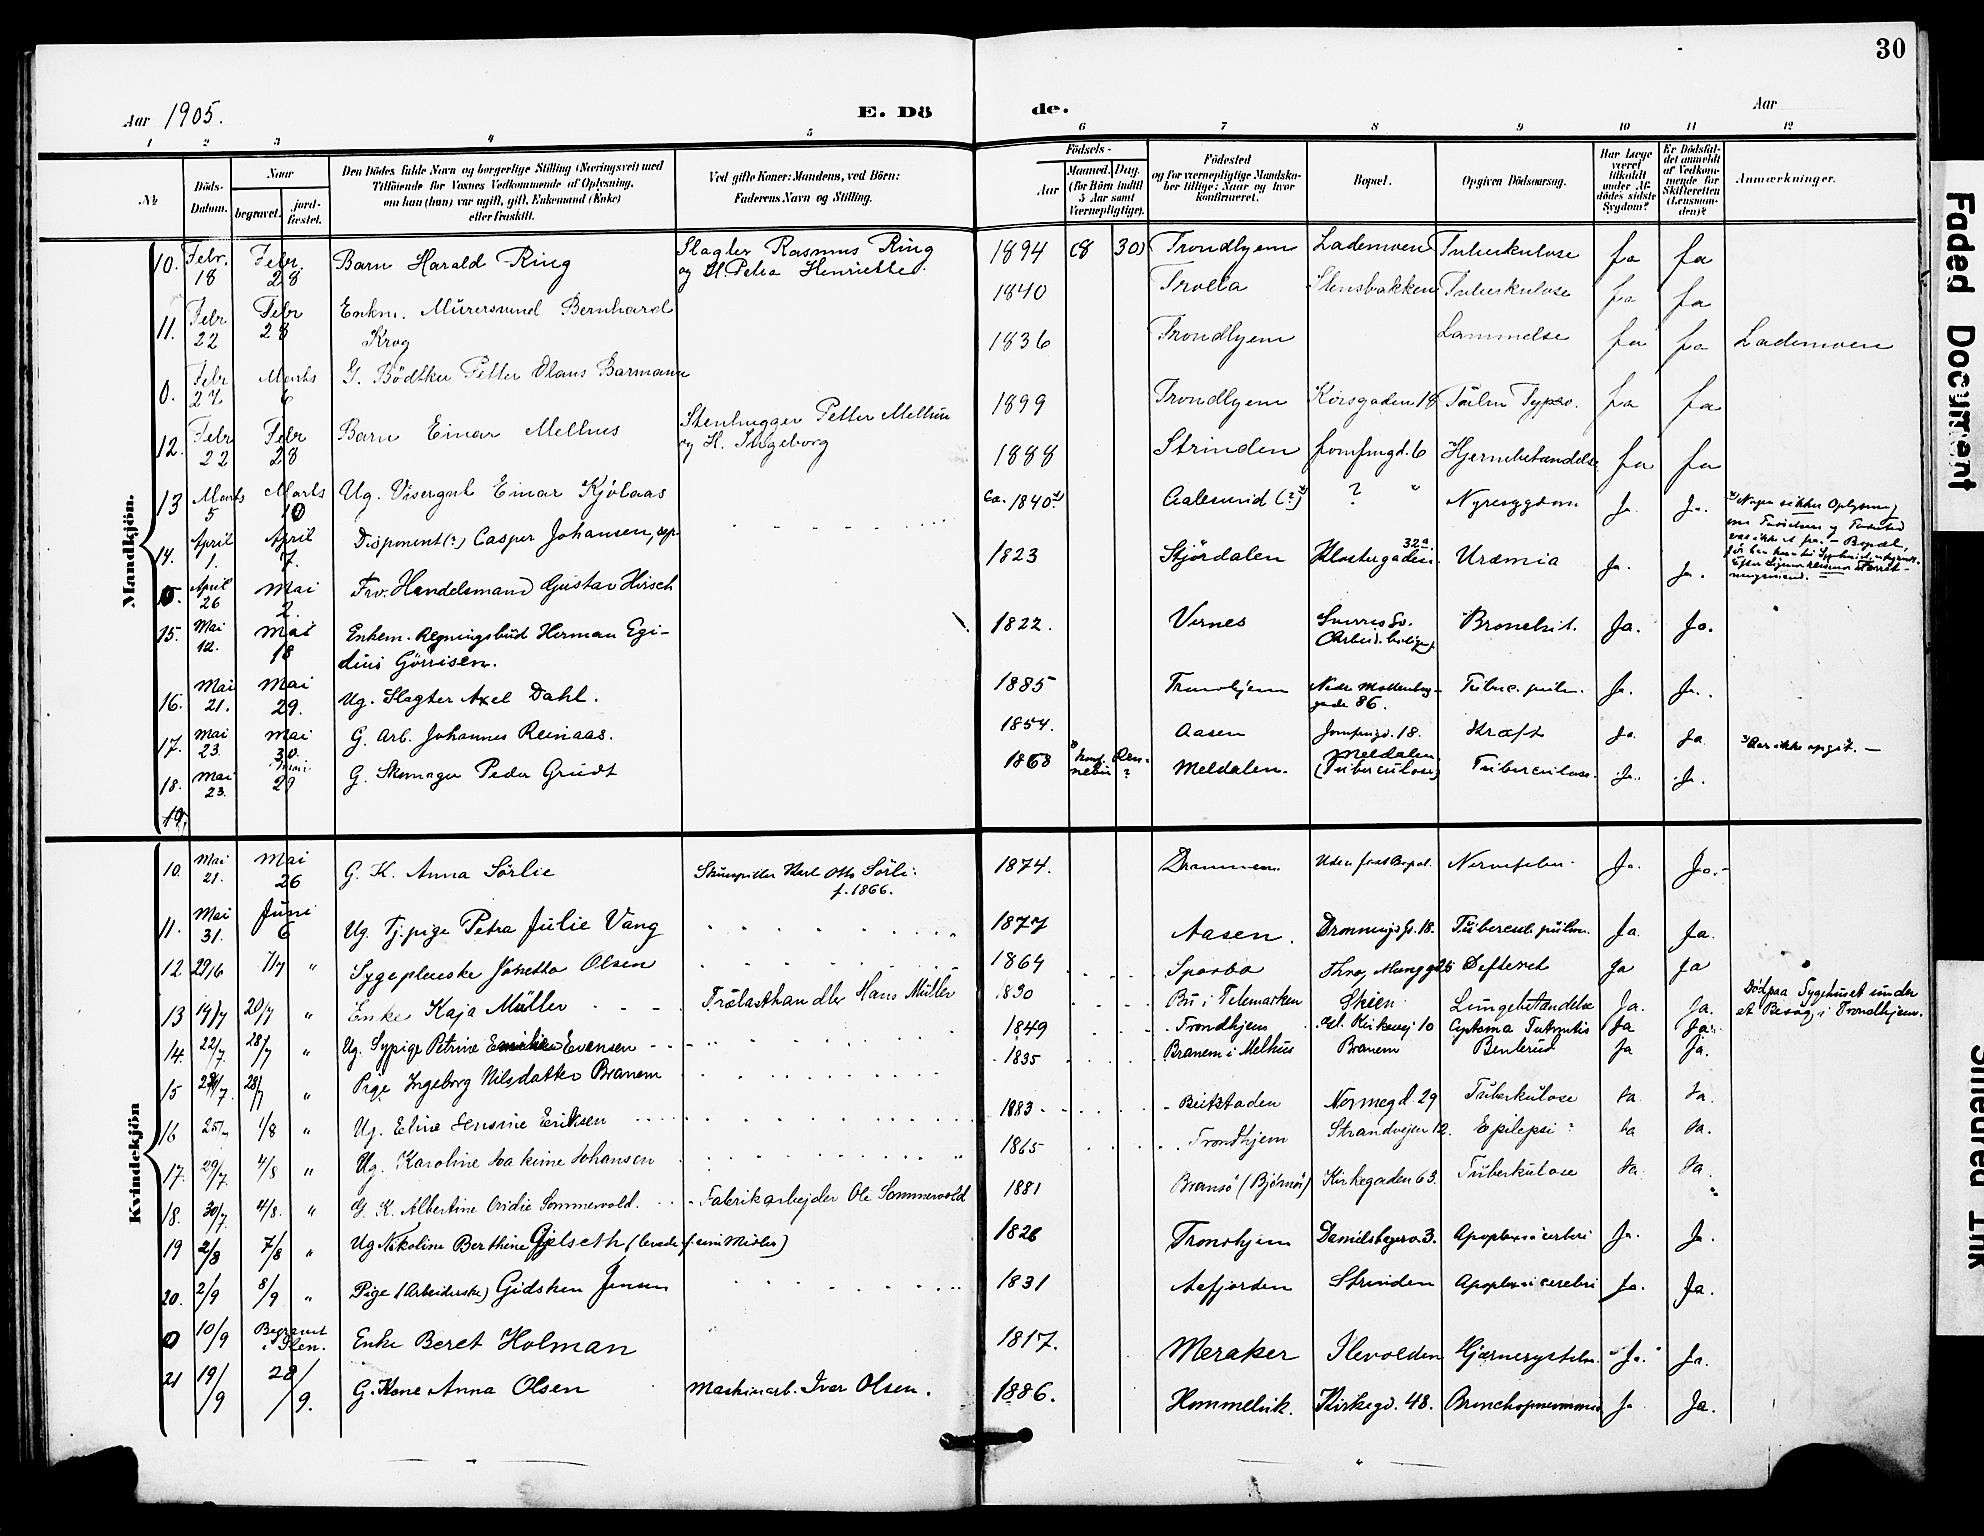 30
Aar 1905.
E. Dö
de.
Aar
1 2 3 4 5 6 7 8 9 10 11 12
№
Döds-Datum.
Naar
begravet.
jord-fæstet.
Den Dödes fulde Navn og borgerlige Stilling (Næringsvei) med
Tilföiende for Voxnes Vedkommende af Oplysning,
om han (hun) var ugift, gift, Enkemand (Enke)
eller fraskilt.
Ved gifte Koner: Mandens, ved Börn:
Faderens Navn og Stilling.
Födsels-
Aar
Maaned. Dag.
(for Börn indtil
5 Aar samt
Værnepligtige).
Födested
og for værnepligtige Mandska-
ber tillige: Naar og hvor
konfirmeret.
Bopæl.
Opgiven Dödsaarsag.
Har Læge
været
tilkaldt
under Af-
dödes sidste
Sygdom?
Er Dödsfal-
det anmeldt
af Vedkom-
mende for
Skifteretten
(Lensman-
den)?
Anmærkninger.
Mandkjön.
10. Febr. 18 Febr. 28 Barn Harald Ring Slagter Rasmus Ring 1894 (8 30) Trondhjem Lademoen Tuberkulose ja ja
og H. Petra Henriette.
11. Febr 22 Febr 28 Enkm. Murersvend Bernhard 1840 Trolla Stensbakken Tuberkulose ja ja
Krog
0. Febr 27 Marts 6 G. Bödtker Petter Olaus Barmann 1836 Trondhjem Lammelse ja ja Lademoen
12. Febr 22 Febr 28 Barn Einar Melhus Stenhugger Petter Melhus 1899 Trondhjem Korsgaden 18 ja ja
og H. Ingeborg
13 Marts 5 Marts 10 Ug. Visergut Einar Kjölaas 1888 Strinden Jomfrugd. 6 Hjernebetændelse ja ja
14. April 1. April 7. Disponent(?) Casper Johansen, Ca. 1840 Aalesund (?) ? " Nyresygdom Ja. Ja.
0. April 26 Mai 2. Frv. Handelsmand Gustav Hirsch 1823 Stjördalen Klostergaden 32a Uræmia Ja. Ja.
15. Mai 12. Mai 18 Enkem. Regningsbud Herman Egi- 1822. Vernes Bronchit. Ja. Ja.
dius Görrisen.
16. Mai 21. Mai 29. Ug. Slagter Axel Dahl. 1885 Trondhjem Nedr. Mollenberg-gade 86. Tuberc. pulm. Ja. Ja.
17. Mai 23. Mai 30. G. Arb. Johannes Reinaas. 1854. Aasen Jomfrugd. 18. Kræft Ja. Ja
18. Mai 23. Mai 29 G. Skomager Peder Grudt 1868 Meldalen. Meldalen (Tuberculose) Tuberculose. Ja. Ja. ikke opgit. —
19.
Kvindekjön
10. Mai 21. Mai 26 G. K. Anna Sörlie Skuespiller Karl Otto Sörli: 1874. Drammen. Uden fast Bopæl. Nervefeber. Ja. Ja.
f. 1866.
11. Mai 31. Juni 6 Ug. Tj.pige Petra Julie Vang 1877 Aasen. Dronningsg. 18. Tubercul. pulm. Ja. Ja.
12 29/6 7/7 " Sygepleierske Jonetta Olsen 1864 Sparbo Thro, Munggd 25 Defteret Ja Ja
13 14/7 20/7 " Enke Kaja Müller Trælasthandler Hans Müller 1830 Bö i Telemarken Skien Lungebetændelse Ja. Ja. Död paa Sygehuset under
et Besög i Trondhjem.
14. 22/7 28/7 " Ug. Sypige Petrine Emilie Evensen 1849 Trondhjem Gl. Kirkevej 10 Ja Ja.
15 24/7. 28/7 " Pige Ingeborg Nilsdatter Branem 1835 Branem i Melhus Branem Benbrud Ja Ja.
16 25/7 1/8 " Ug. Eline Jensine Eriksen 1883 Beitstaden Normegd. 29 Tuberkulose Ja. Ja.
17. 29/7. 4/8 " Ug. Karoline Joakime Johansen 1865 Trondhjem Strandvejen 12. Epilepsi Ja Ja.
18. 30/7. 4/8. " G. K. Albertine Ovidie Sommervold. Fabrikarbejder Ole Sommervold 1881 Bransö (Björnör) Kirkegaden 63. Tuberkulose Ja. Ja.
19 2/8 7/8 " Ug Nikoline Berthine Gjelseth (levede af sine Midler) 1826 Trondhjem Danielsbergv. 3. Apoplexia cerebri Ja. Ja.
20. 2/9 8/9 " Pige (Arbeiderske) Gidsken Jensen 1831 Aafjorden Strinden Apoplexia cerebri Ja. Ja.
0 10/9 Begravet i Ilen. Enke Beret Holman 1817. Meraker Ilevolden Ja. Ja.
21 19/9 28/9. G. Kone Anna Olsen Maskinarb. Ivar Olsen. 1886. Hommelvik. Kirkegd. 48. Bronchopneumonia Ja Ja.
Faded Document
Smeared Ink